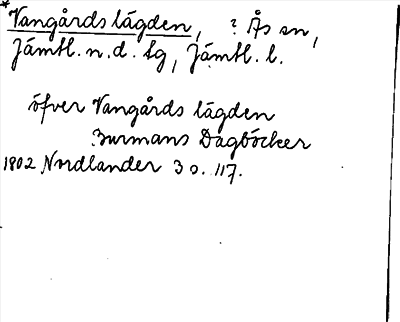 *Vangårds lägden, ? Ås sn,
Jämtl. n. d. tg, Jämtl. l.
öfver Vangårds lägden
Burmans Dagböcker
1802 Nordlander 3 o. 117.